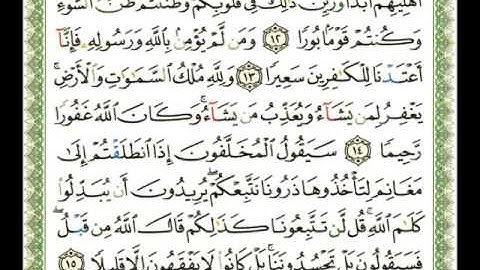 أَهْلِيهِمْ أَبَدًا وَزُيِّنَ ذَٰلِكَ فِى قُلُوبِكُمْ وَظَنَنتُمْ ظَنَّ ٱلسَّوْءِ
وَكُنتُمْ قَوْمًۢا بُورًا ۝١٢ وَمَن لَّمْ يُؤْمِنۢ بِٱللَّهِ وَرَسُولِهِۦ فَإِنَّآ
أَعْتَدْنَا لِلْكَـٰفِرِينَ سَعِيرًا ۝١٣ وَلِلَّهِ مُلْكُ ٱلسَّمَـٰوَٰتِ وَٱلْأَرْضِ ۚ
يَغْفِرُ لِمَن يَشَآءُ وَيُعَذِّبُ مَن يَشَآءُ ۚ وَكَانَ ٱللَّهُ غَفُورًا
رَّحِيمًا ۝١٤ سَيَقُولُ ٱلْمُخَلَّفُونَ إِذَا ٱنطَلَقْتُمْ إِلَىٰ
مَغَانِمَ لِتَأْخُذُوهَا ذَرُونَا نَتَّبِعْكُمْ ۖ يُرِيدُونَ أَن يُبَدِّلُوا۟
كَلَـٰمَ ٱللَّهِ ۚ قُل لَّن تَتَّبِعُونَا كَذَٰلِكُمْ قَالَ ٱللَّهُ مِن قَبْلُ ۖ
فَسَيَقُولُونَ بَلْ تَحْسُدُونَنَا ۚ بَلْ كَانُوا۟ لَا يَفْقَهُونَ إِلَّا قَلِيلًا ۝١٥